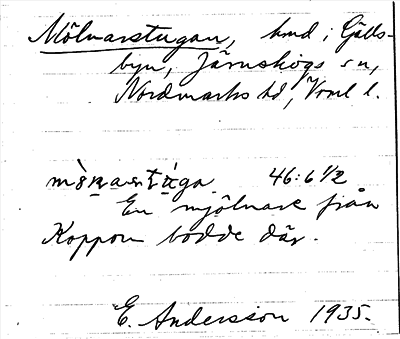 Mölnarstugan, hmd i Gälls-
byn, Järnskogs sn,
Nordmarks hd, Vrml l.
46:6 1/2
En mjölnare från
Koppom bodde där.
E. Andersson 1935.